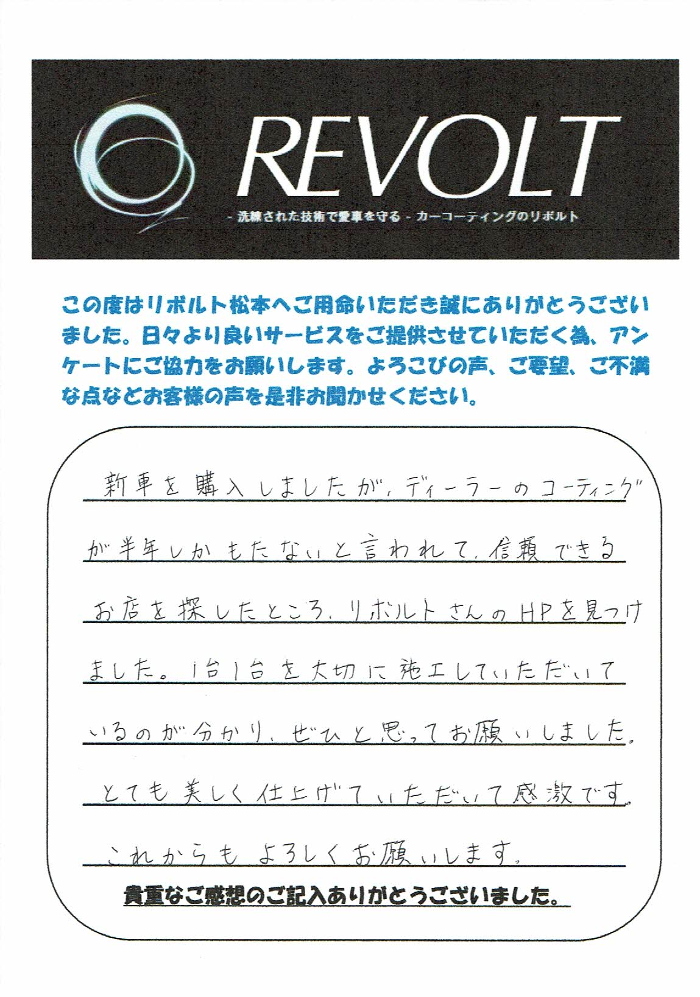 REVOLT
- 洗練された技術で愛車を守る - カーコーティングのリボルト
この度はリボルト松本へご用命いただき誠にありがとうござい
ました。日々より良いサービスをご提供させていただく為、アン
ケートにご協力をお願いします。よろこびの声、ご要望、ご不満
な点などお客様の声を是非お聞かせください。
新車を購入しましたが、ディーラーのコーティング
が半年しかもたないと言われて、信頼できる
お店を探したところ、リボルトさんのHPを見つけ
ました。1台1台を大切に施工していただいて
いるのが分かり、ぜひと思ってお願いしました。
とても美しく仕上げていただいて感激です。
これからもよろしくお願いします。
貴重なご感想のご記入ありがとうございました。